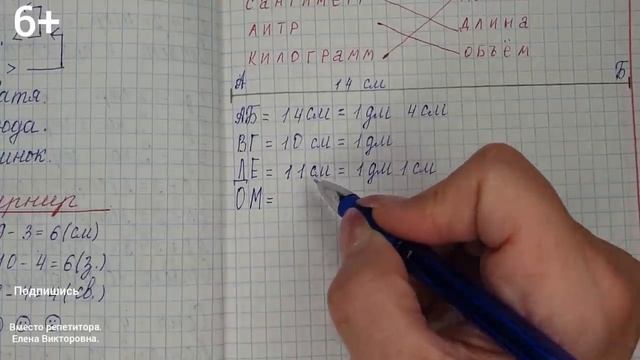 6+
САНТИМЕТР
ЛИТР
ДЛИНА
КИЛОГРАММ
ОБЪЁМ
А 14 см Б
АБ = 14 см = 1 дм 4 см
ВГ = 10 см = 1 дм
ДЕ = 11 см = 1 дм 1 см
ОМ =
9 - 3 = 6 (см)
10 - 4 = 6 (з.)
Подпишись
Вместо репетитора.
Елена Викторовна.